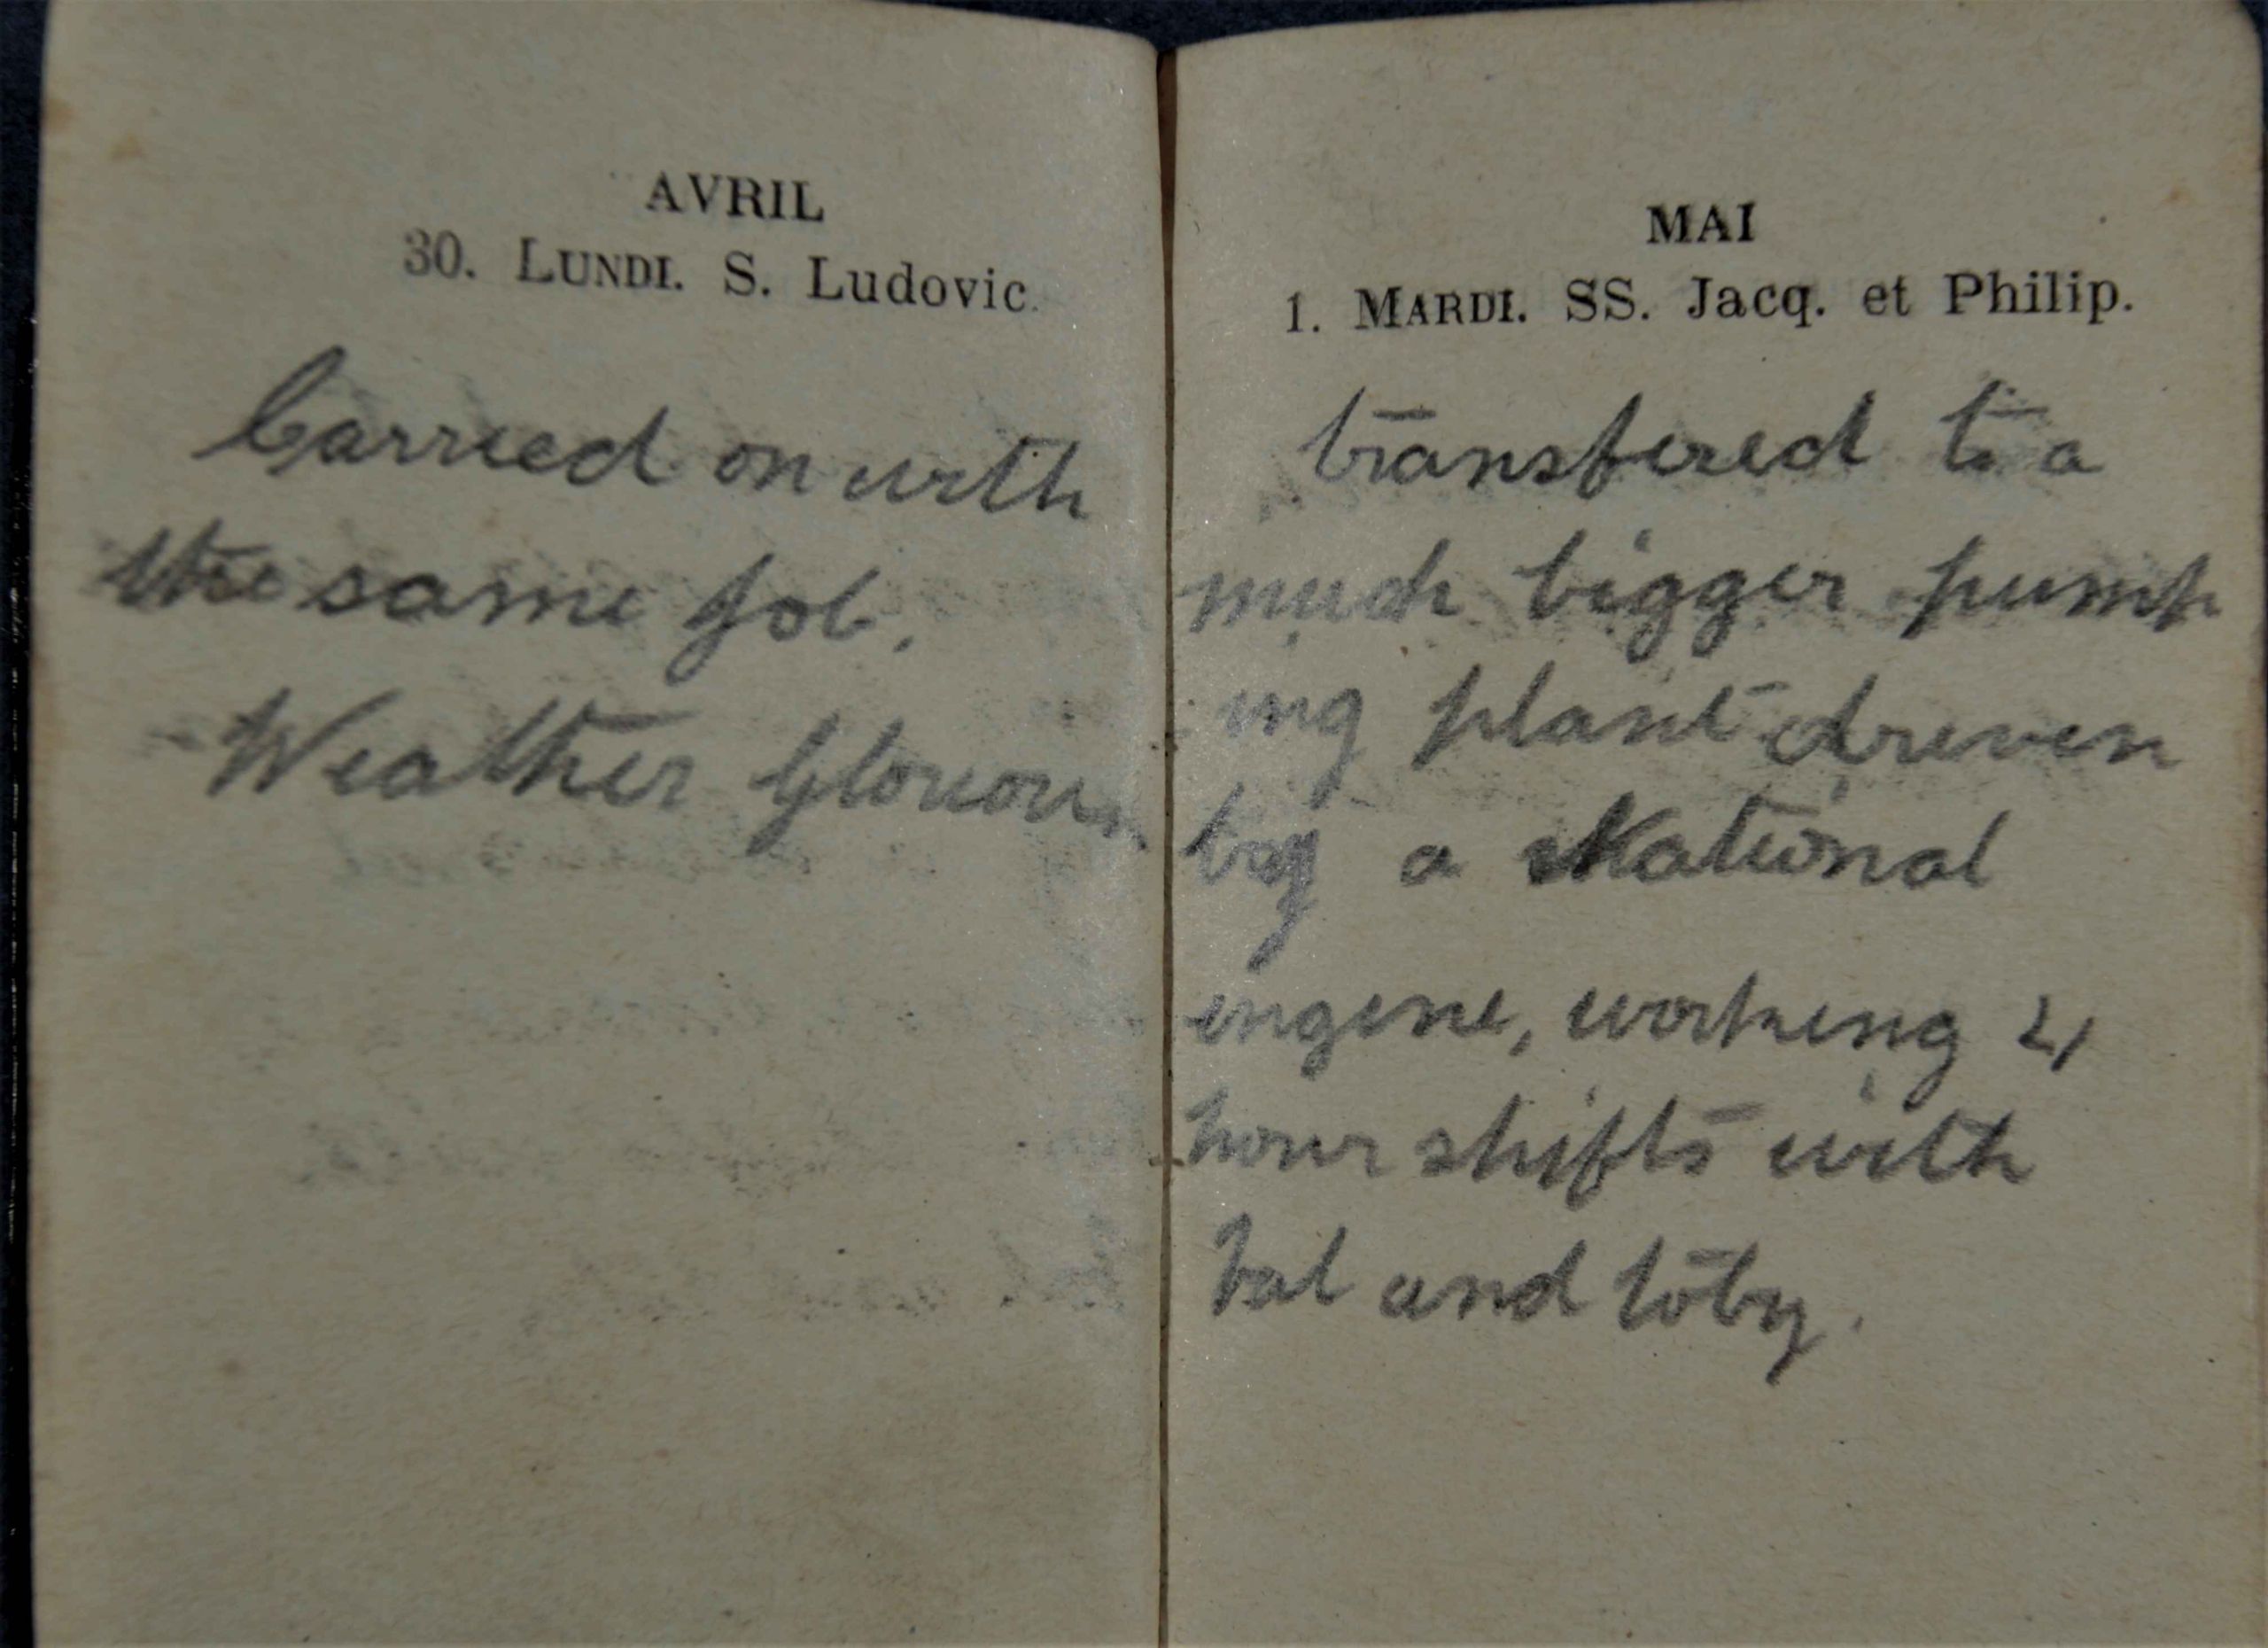 AVRIL
30. LUNDI. S. Ludovic.
Carried on with
the same job.
Weather Glorious
MAI
1. MARDI. SS. Jacq. et Philip.
transfered to a
much bigger pump
ing plant driven
by a National
engine, working 4
hour shifts with
and toby.